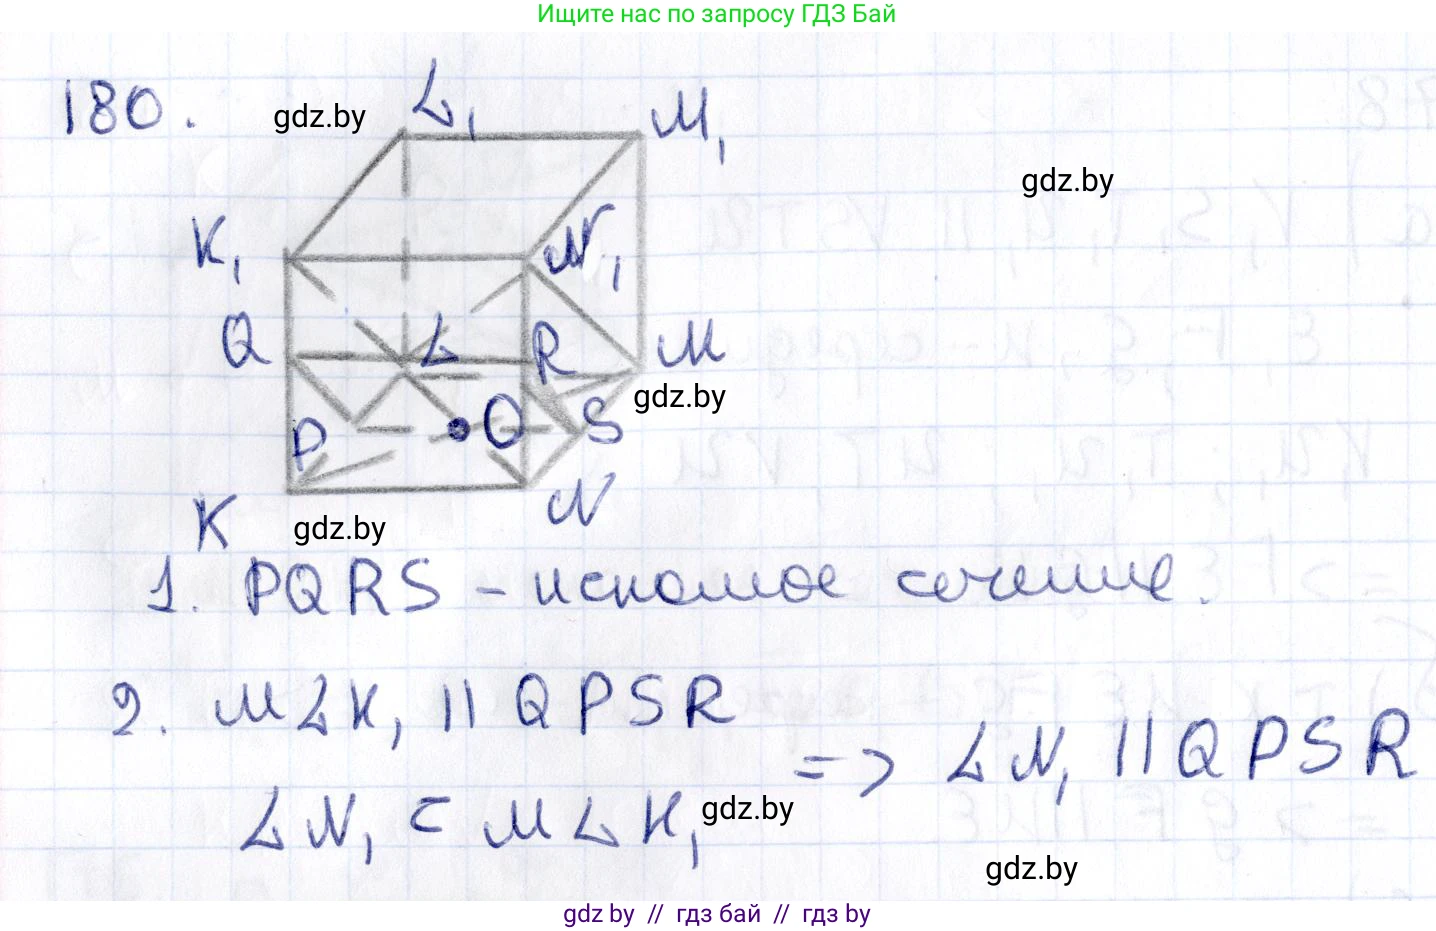 Ищите нас по запросу ГДЗ Бай
180.
gdz.by
L₁
M₁
gdz.by
K₁
N₁
Q
L
R
M
gdz.by
P
O
S
K
gdz.by
N
1. PQRS - искомое сечение.
2. MLK₁ || QPSR
=> LN₁ || QPSR
LN₁ ⊂ MLK₁
gdz.by
gdz.by
gdz by // гдз бай // гдз by